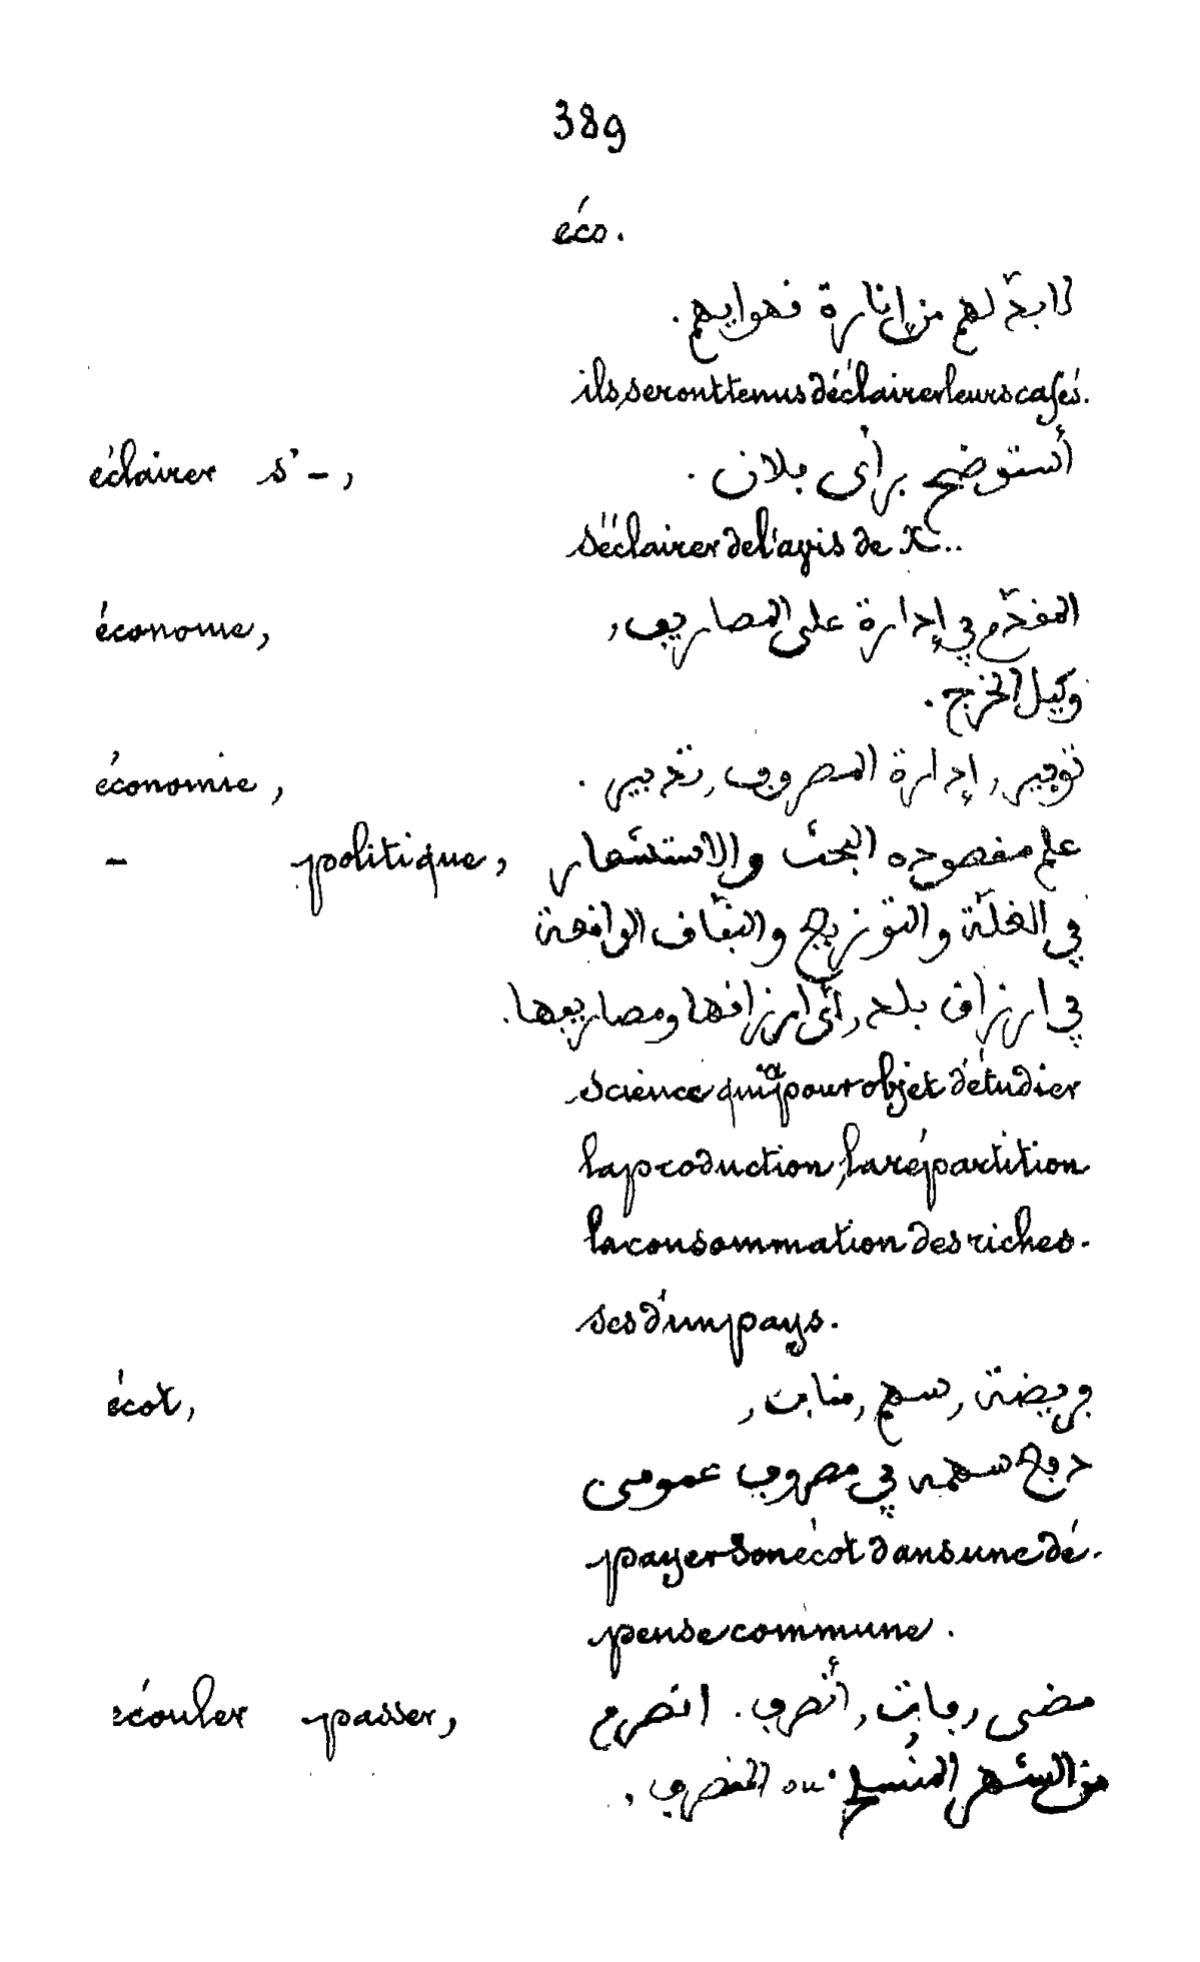 389
éco.
لا بدّ لهم من إنارة فهوايهم.
ils seront tenus d'éclairer leurs cafés.
éclairer s'–, أستوضح برأى بلان.
s'éclairer de l'avis de X..
économe, المفدّم في إدارة على المصاريف,
وكيل الخرج.
économie, توفير, إدارة المصروف, تدبير.
– politique, علم مفصوده البحث والاستشعار
في الغلّة والتوزيع والنفاف الوافعة
في ارزاف بلد, أي ارزافها ومصاريفها.
science qui a pour objet d'étudier
la production, la répartition
la consommation des riches-
ses d'un pays.
écot, فريضة, سهم, مناب,
دفع سهمه في مصروف عمومى
payer son écot dans une dé-
pense commune.
écouler passer, مضى, فات, أنصرف. انصرم
من الشهر المنسلخ. ou المنصرف,